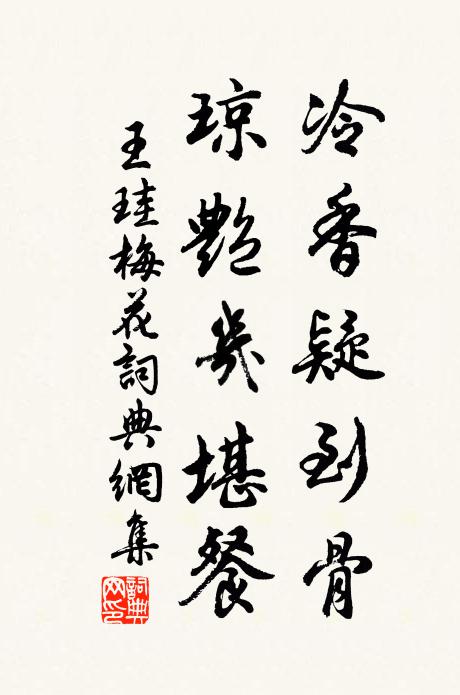 冷香疑到骨
琼艷幾堪餐
王珪梅花詞典網集
詞典網印